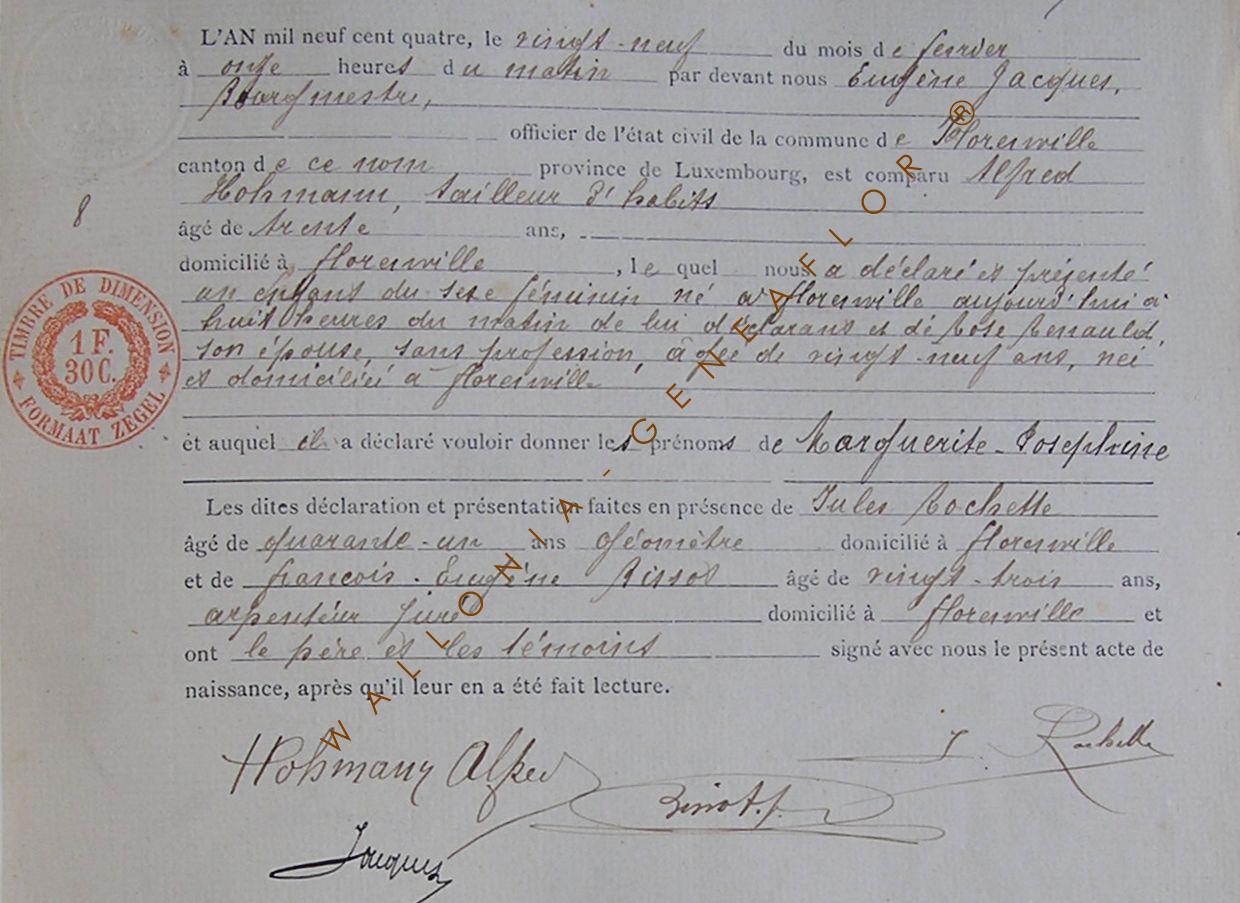 L'AN mil neuf cent quatre, le vingt-neuf du mois de fevrier
à onze heures du matin par devant nous Eugène Jacques,
Bourgmestre,
officier de l'état civil de la commune de Florenville
canton de ce nom province de Luxembourg, est comparu Alfred
Hohmann, tailleur d'habits
8
âgé de trente ans,
domicilié à florenville, lequel nous a déclaré et présenté
un enfant du sexe féminin né à florenville aujourd'hui à
huit heures du matin de lui déclarant et de Rose Renauld,
son épouse, sans profession, âgée de vingt-neuf ans, née
et domiciliée à florenville
TIMBRE DE DIMENSION
1 F.
30 C.
FORMAAT ZEGEL
et auquel il a déclaré vouloir donner les prénoms de Marguerite-Josephine
Les dites déclaration et présentation faites en présence de Jules Rochette
âgé de quarante-un ans Géomètre domicilié à florenville
et de françois-Eugène Rissot âgé de vingt-trois ans,
arpenteur juré domicilié à florenville et
ont le père et les témoins signé avec nous le présent acte de
naissance, après qu'il leur en a été fait lecture.
Hohmann Alfred
J. Rochette
Jacques
WALLONIA-GENEAFLOR®